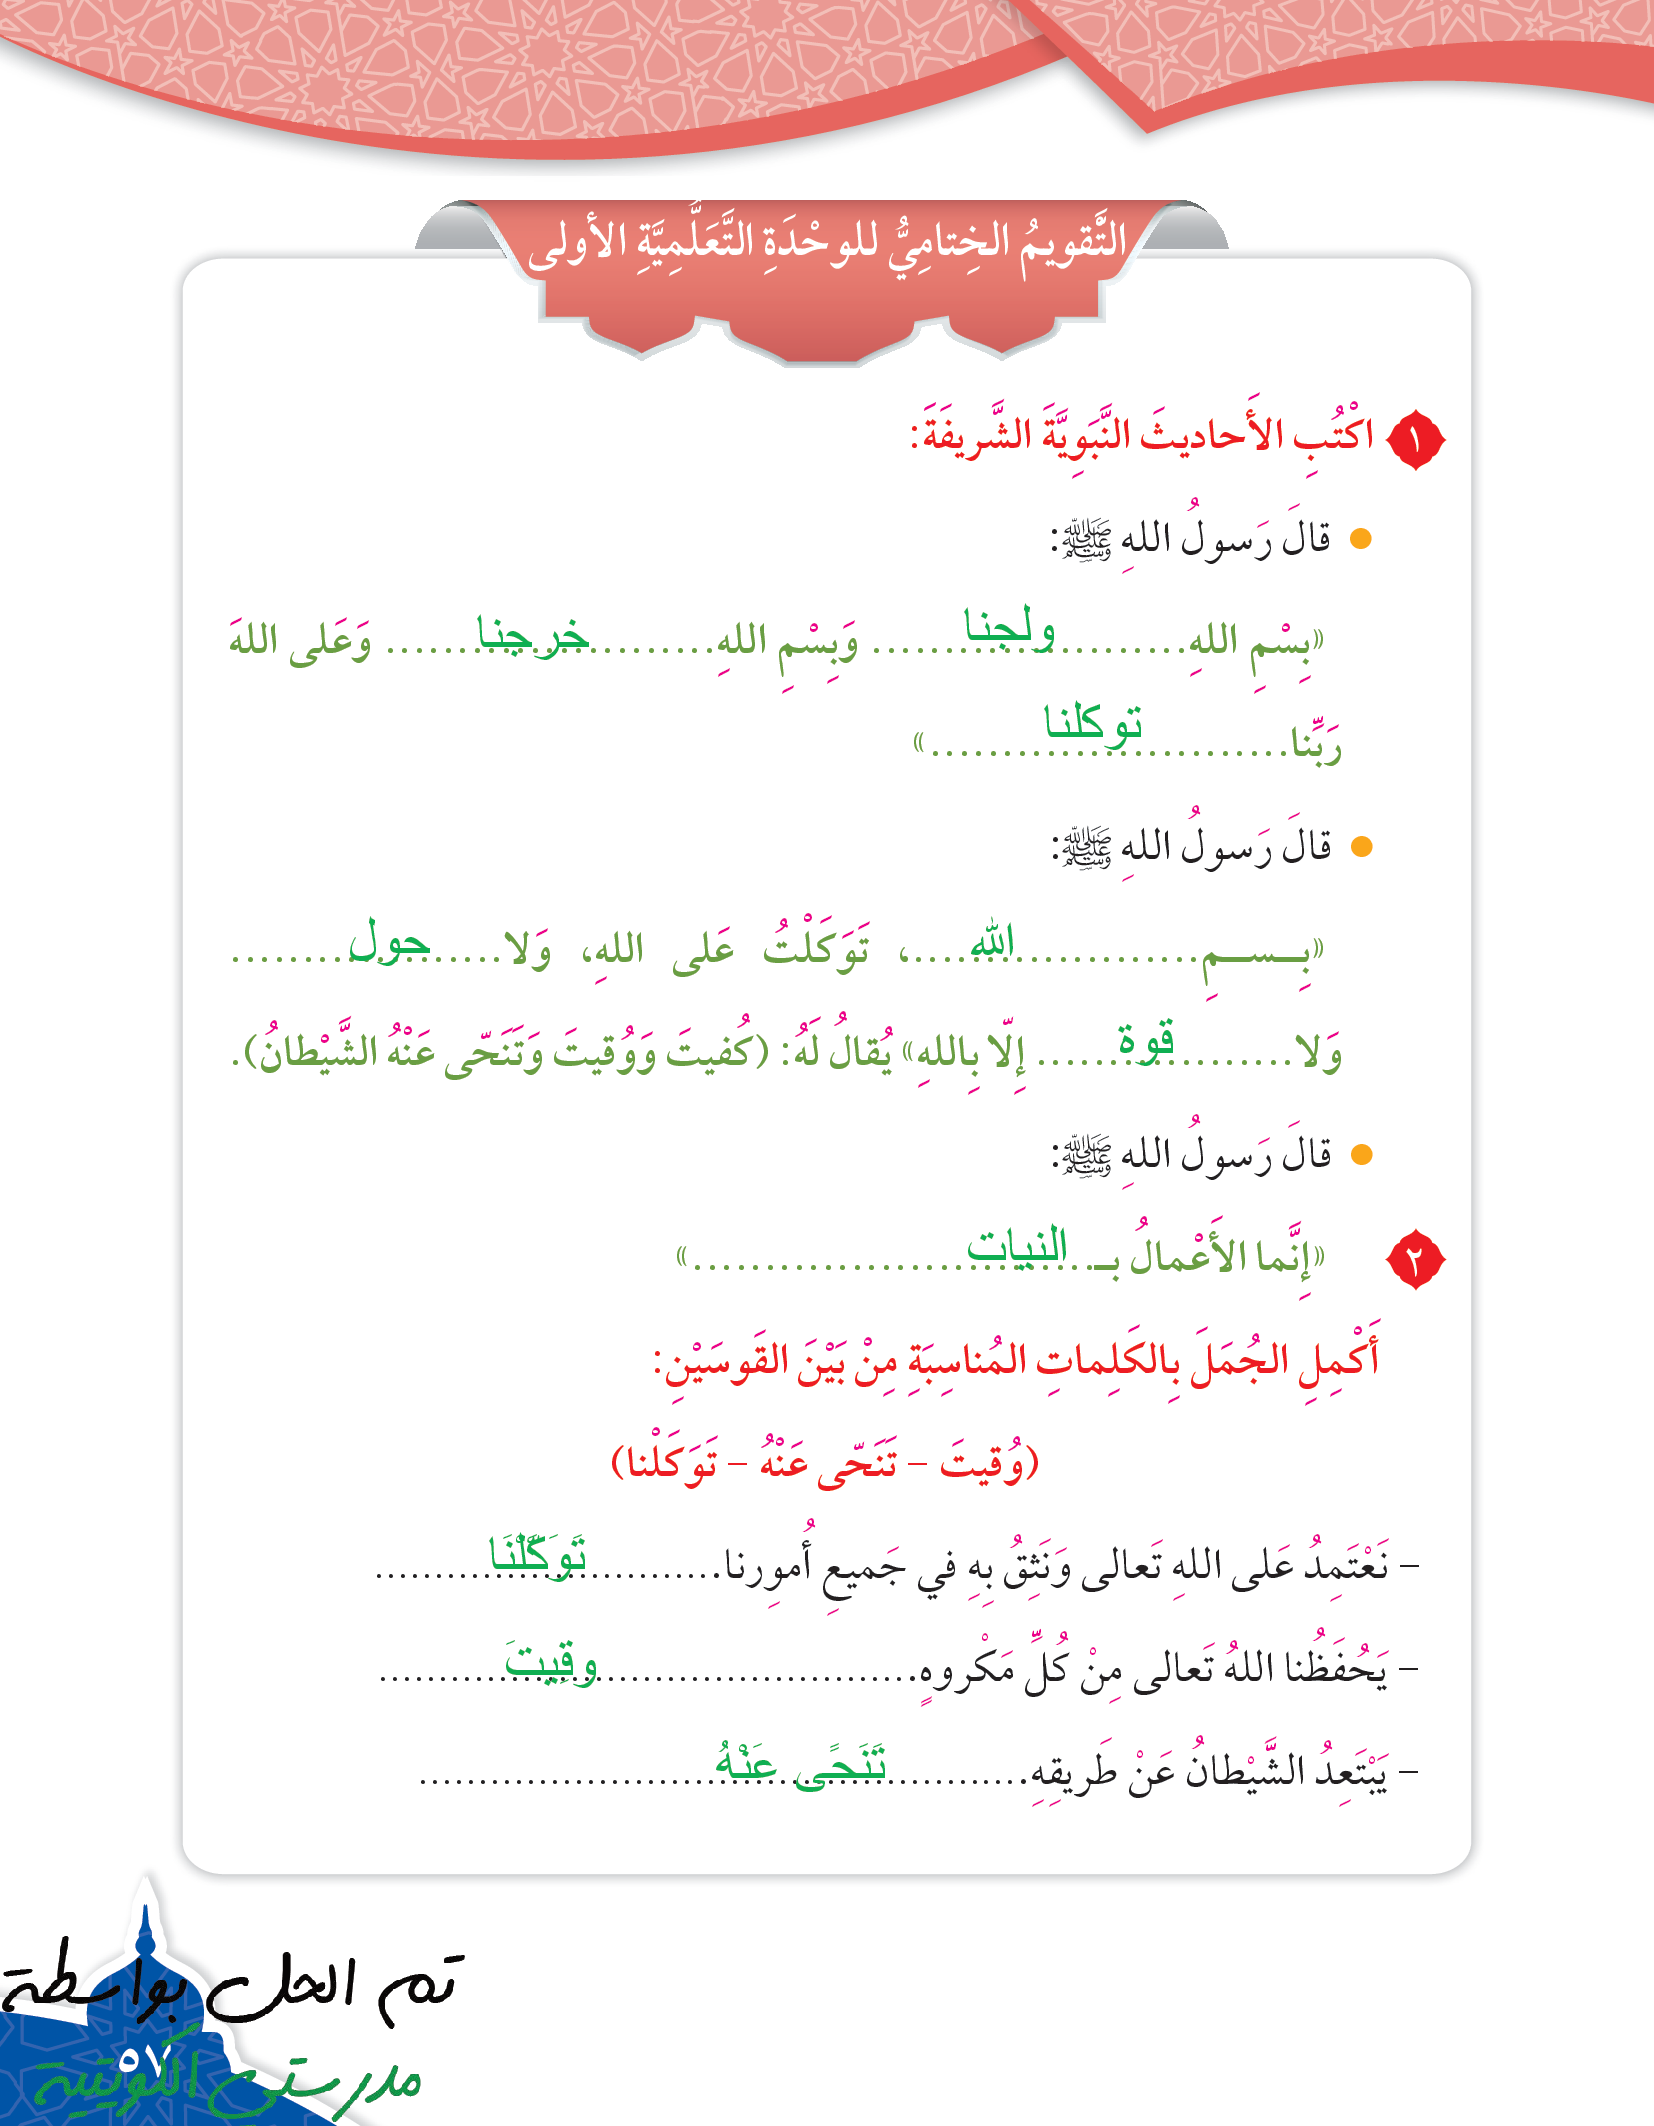 التَّقويمُ الخِتامِيُّ للوحْدَةِ التَّعَلُّمِيَّةِ الأولى
١ اكْتُبِ الأَحاديثَ النَّبَوِيَّةَ الشَّريفَةَ:
● قالَ رَسولُ اللهِ ﷺ:
«بِسْمِ اللهِ ..... ولجنا ..... وَبِسْمِ اللهِ ..... خرجنا ..... وَعَلى اللهَ
رَبِّنا ..... توكلنا .....»
● قالَ رَسولُ اللهِ ﷺ:
«بِـسـمِ ..... الله .....، تَوَكَلْتُ عَلى اللهِ، وَلا ..... حول .....
وَلا ..... قوة ..... إِلّا بِاللهِ» يُقالُ لَهُ: (كُفيتَ وَوُقيتَ وَتَنَحّى عَنْهُ الشَّيْطانُ).
● قالَ رَسولُ اللهِ ﷺ:
٢ «إِنَّما الأَعْمالُ بـ ..... النيات .....»
أَكْمِلِ الجُمَلَ بِالكَلِماتِ المُناسِبَةِ مِنْ بَيْنَ القَوسَيْنِ:
(وُقيتَ – تَنَحّى عَنْهُ – تَوَكَلْنا)
– نَعْتَمِدُ عَلى اللهِ تَعالى وَنَثِقُ بِهِ في جَميعِ أُمورِنا ..... تَوَكَّلْنَا .....
– يَحُفَظُنا اللهُ تَعالى مِنْ كُلِّ مَكْروهٍ ..... وقِيتَ .....
– يَبْتَعِدُ الشَّيْطانُ عَنْ طَريقِهِ ..... تَنَحًى عَنْهُ .....
تم الحل بواسطة
مدرستي الكويتية
٥٧